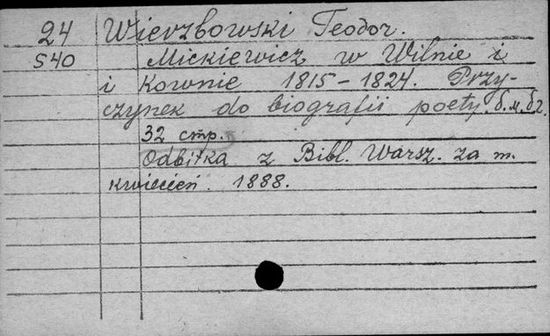 24 Wierzbowski Teodor.
S40 Mickiewicz w Wilnie i
i Kownie 1815-1824. Przy-
czynek do biografii poety. б.м.б г.
32 стр.
Odbitka z Bibl. Warsz. za m.
kwiecień. 1888.